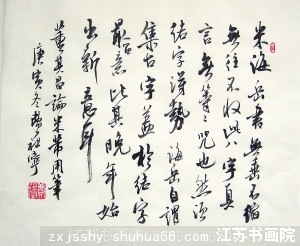 米海岳书无垂不缩
无往不收此八字真
言无等等咒也然须
结字得势海岳自谓
集古字盖于结字
最留意比其晚年始
出新意耳
董其昌论米芾用笔
庚寅冬
zxjsshy.shuhua66.com 江苏书画院